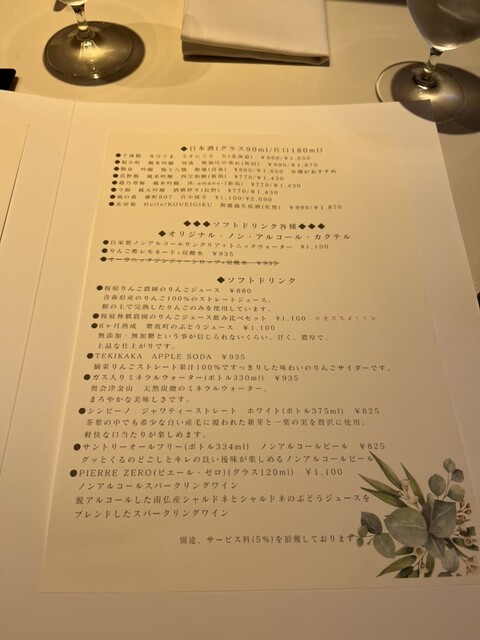 ◆日本酒(グラス90ml/片口180ml)
純米吟醸
¥880/¥1,650
¥770/¥1,430
¥770/¥1,430
¥770/¥1,430
¥1,100/¥2,090
Hello!KOUEIGIKU
¥990/¥1,870
◆◆◆ソフトドリンク各種◆◆◆
◆オリジナル・ノン・アルコール・カクテル
●自家製ノンアルコールサングリア+トニックウォーター ¥1,100
●りんご酢レモネード+炭酸水 ¥935
●オーガニックジンジャーシロップ+炭酸水 ¥935
◆ソフトドリンク
●桜庭りんご農園のりんごジュース ¥880
青森県産のりんご100%のストレートジュース。
樹の上で完熟したりんごのみを使用しています。
●桜庭林檎農園のりんごジュース飲み比べセット ¥1,100 <オススメ!!>
●6ヶ月熟成 紫波町のぶどうジュース ¥1,100
無添加・無加糖という事が信じられないくらい、甘く、濃厚で、
上品な仕上がりです。
●TEKIKAKA APPLE SODA ¥935
摘果りんごストレート果汁100%ですっきりした味わいのりんごサイダーです。
●ガス入りミネラルウォーター(ボトル330ml) ¥935
奥会津金山 天然炭酸のミネラルウォーター。
まろやかな美味しさです。
●シンビーノ ジャワティーストレート ホワイト(ボトル375ml) ¥825
茶葉の中でも希少な白い産毛に覆われた新芽と一葉の実を贅沢に使用。
軽快な口当たりが楽しめます。
●サントリーオールフリー(ボトル334ml) ノンアルコールビール ¥825
グッとくるのどごしとキレの良い後味が楽しめるノンアルコールビール
●PIERRE ZERO(ピエール・ゼロ)(グラス120ml) ¥1,100
ノンアルコールスパークリングワイン
脱アルコールした南仏産シャルドネとシャルドネのぶどうジュースを
ブレンドしたスパークリングワイン
別途、サービス料(5%)を頂戴しております